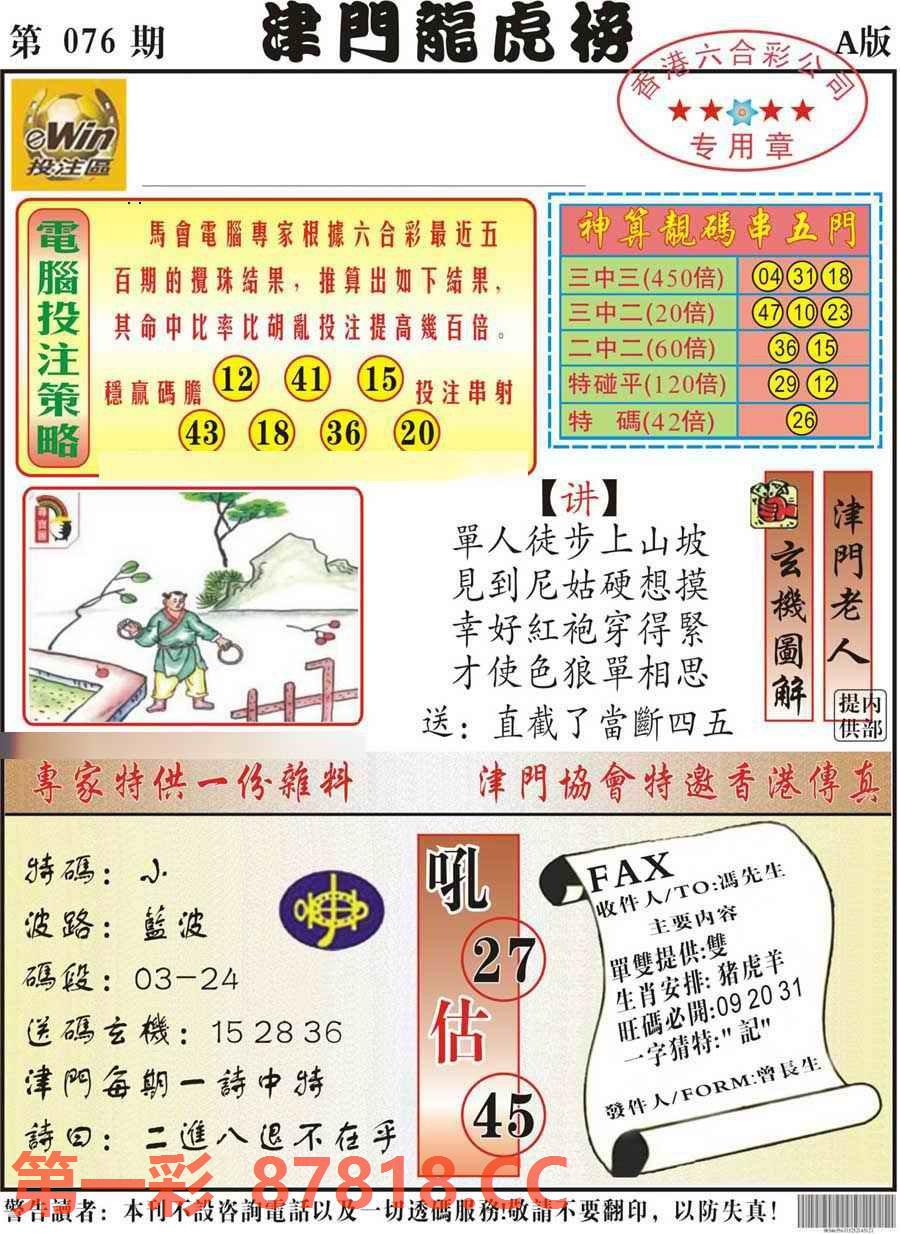 第 076 期
津門龍虎榜
A版
香港六合彩公司
专用章
eWin
投注區
電腦投注策略
馬會電腦專家根據六合彩最近五
百期的攪珠結果，推算出如下結果，
其命中比率比胡亂投注提高幾百倍。
穩贏碼膽 12 41 15 投注串射
43 18 36 20
神算靚碼串五門
三中三(450倍) 04 31 18
三中二(20倍) 47 10 23
二中二(60倍) 36 15
特碰平(120倍) 29 12
特 碼(42倍) 26
尋寶圖
【讲】
單人徒步上山坡
見到尼姑硬想摸
幸好紅袍穿得緊
才使色狼單相思
送：直截了當斷四五
玄機圖解
津門老人
内部提供
專家特供一份雜料
津門協會特邀香港傳真
特碼：小
波路：藍波
碼段：03-24
送碼玄機：15 28 36
津門每期一詩中特
詩曰：二進八退不在乎
吼
27
估
45
FAX
收件人/TO:馮先生
主要内容
單雙提供:雙
生肖安排:猪虎羊
旺碼必開:09 20 31
一字猜特:"記"
發件人/FORM:曾長生
第一彩 87818.CC
警告讀者：本刊不設咨詢電話以及一切透碼服務!敬請不要翻印，以防失真！